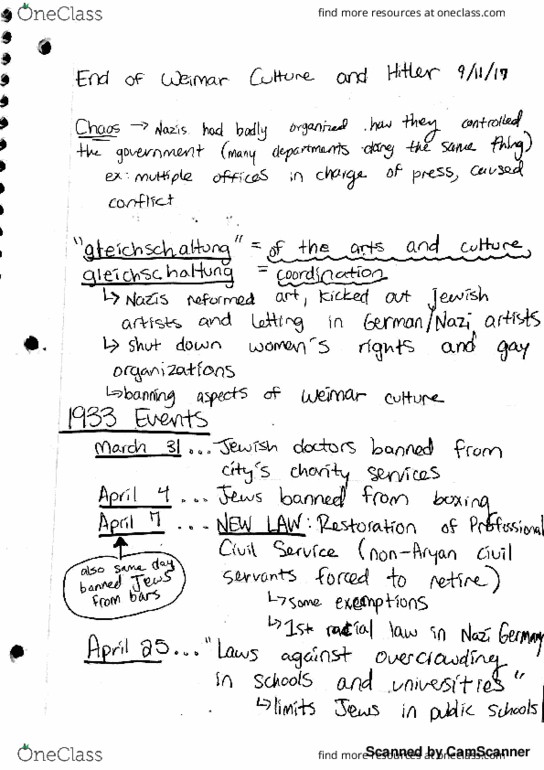 OneClass
find more resources at oneclass.com
End of Weimar Culture and Hitler 9/11/17
Chaos → Nazis had badly organized how they controlled
the government (many departments doing the same thing)
ex: multiple offices in charge of press, caused
conflict
"gleichschaltung" = of the arts and culture
gleichschaltung = coordination
↳ Nazis reformed art, kicked out Jewish
artists and letting in German/Nazi artists
↳ shut down women's rights and gay
organizations
↳ banning aspects of Weimar culture
1933 Events
March 31 ... Jewish doctors banned from
city's charity services
April 4 ... Jews banned from boxing
April 7 ... NEW LAW: Restoration of Professional
Civil Service (non-Aryan civil
servants forced to retire)
also same day
banned Jews
from bars
↳ some exemptions
↳ 1st racial law in Nazi Germany
April 25 ... "Laws against overcrowding
in schools and universities"
↳ limits Jews in public schools
OneClass
find more resources at oneclass.com
Scanned by CamScanner